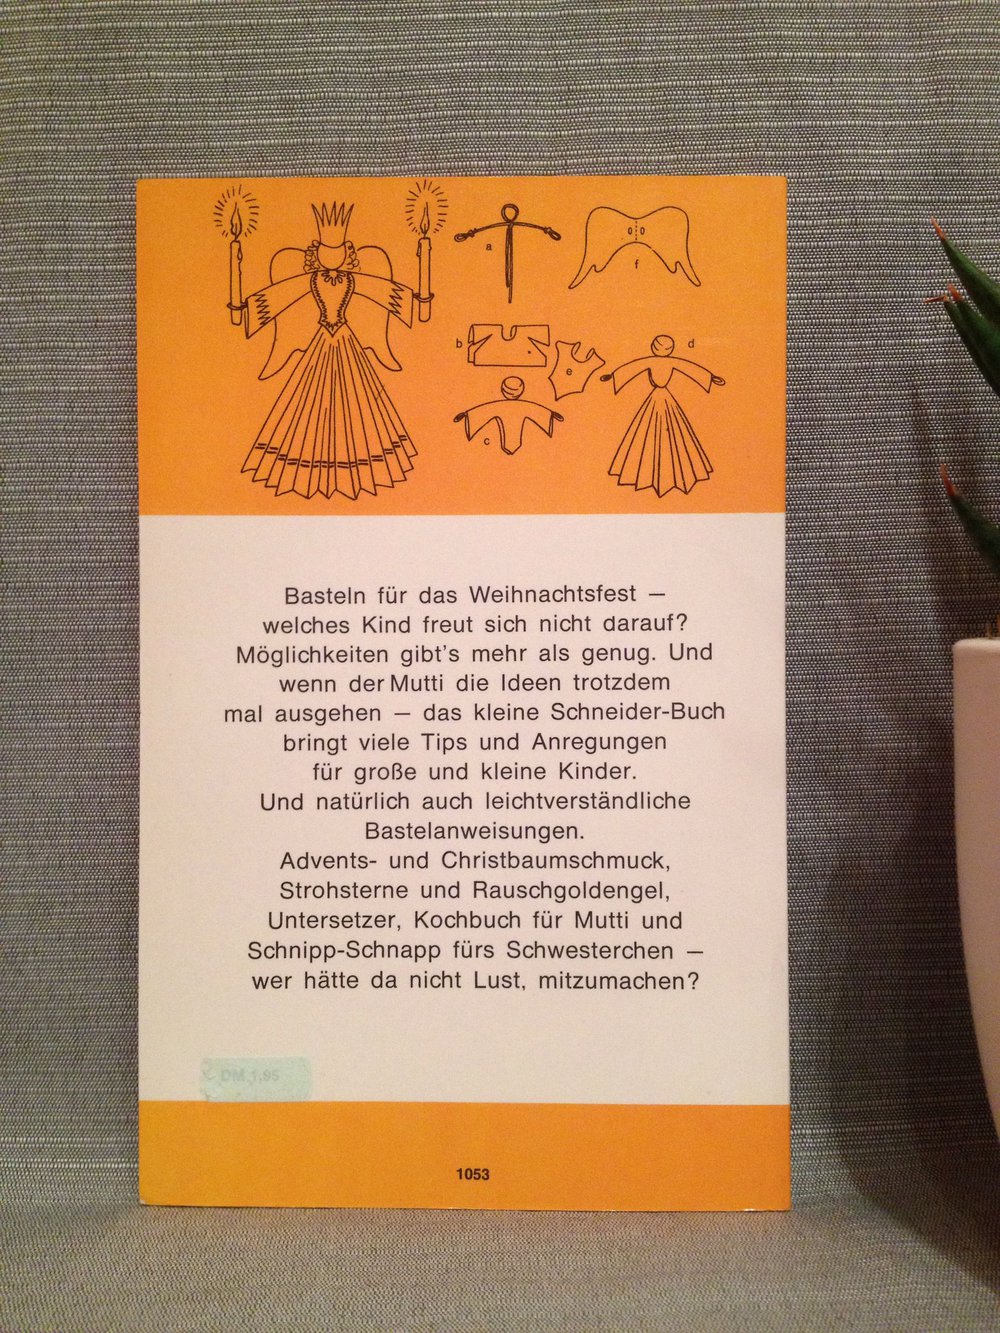 a
f
b
e
d
c
Basteln für das Weihnachtsfest —
welches Kind freut sich nicht darauf?
Möglichkeiten gibt's mehr als genug. Und
wenn der Mutti die Ideen trotzdem
mal ausgehen — das kleine Schneider-Buch
bringt viele Tips und Anregungen
für große und kleine Kinder.
Und natürlich auch leichtverständliche
Bastelanweisungen.
Advents- und Christbaumschmuck,
Strohsterne und Rauschgoldengel,
Untersetzer, Kochbuch für Mutti und
Schnipp-Schnapp fürs Schwesterchen —
wer hätte da nicht Lust, mitzumachen?
DM 1,95
1053